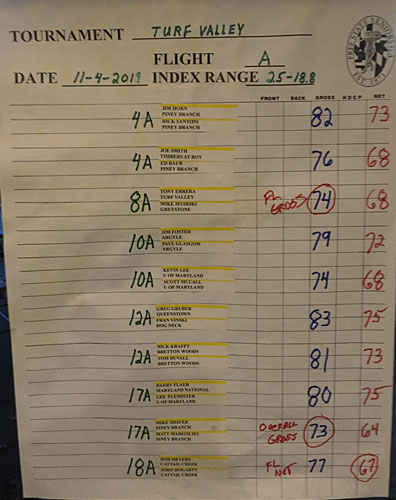 TOURNAMENT TURF VALLEY
FLIGHT A
DATE 11-4-2019 INDEX RANGE 25-18.8
FRONT BACK GROSS HDCP NET
JIM HORN
PINEY BRANCH
4A NICK SANTONI 82 73
PINEY BRANCH
JOE SMITH
TIMBERS AT TROY
4A ED BAUER 76 68
PINEY BRANCH
TONY
TURF VALLEY
8A MIKE FL GROSS 74 68
GREYSTONE
JIM FOSTER
ARGYLE
10A PAUL GLASGOW 79 72
ARGYLE
KEVIN LEE
U OF MARYLAND
10A SCOTT MCCALL 74 68
U OF MARYLAND
GREG GRUBER
QUEENSTOWN
12A FRAN VINSKI 83 75
HOG NECK
NICK KRAFFT
BRETTON WOODS
12A TOM DUVALL 81 73
BRETTON WOODS
BARRY FLAER
MARYLAND NATIONAL
17A LEE FLEMISTER 80 75
U OF MARYLAND
MIKE SHAVER
PINEY BRANCH
17A MATT MARGOLIES OVERALL GROSS 73 64
PINEY BRANCH
BOB MEYERS
CATTAIL CREEK
18A JOHN HOGARTY FL NET 77 67
CATTAIL CREEK